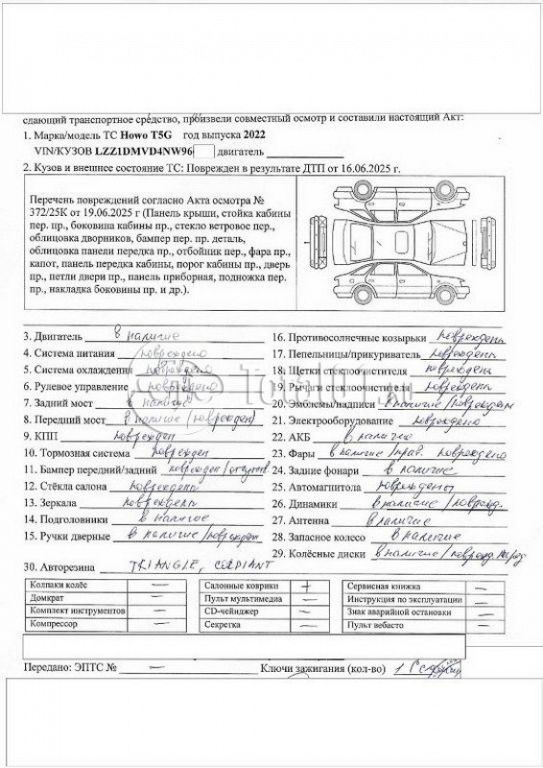 сдающий транспортное средство, произвели совместный осмотр и составили настоящий Акт:
1. Марка/модель ТС Howo T5G год выпуска 2022
VIN/КУЗОВ LZZ1DMVD4NW96 двигатель
2. Кузов и внешнее состояние ТС: Поврежден в результате ДТП от 16.06.2025 г.
Перечень повреждений согласно Акта осмотра №
372/25К от 19.06.2025 г (Панель крыши, стойка кабины
пер. пр., боковина кабины пр., стекло ветровое пер.,
облицовка дворников, бампер пер. пр. деталь,
облицовка панели передка пр., отбойник пер., фара пр.,
капот, панель передка кабины, порог кабины пр., дверь
пр., петли двери пр., панель приборная, подножка пер.
пр., накладка боковины пр. и др.).
3. Двигатель в наличие
4. Система питания повреждено
5. Система охлаждения повреждено
6. Рулевое управление повреждено
7. Задний мост в наличие
8. Передний мост в наличие (поврежден)
9. КПП поврежден
10. Тормозная система поврежден
11. Бампер передний/задний поврежден/отсутст
12. Стёкла салона повреждены
13. Зеркала повреждены
14. Подголовники в наличие
15. Ручки дверные в наличие/поврежден.
16. Противосолнечные козырьки повреждены
17. Пепельницы/прикуриватель повреждены
18. Щетки стеклоочистителя повреждены
19. Рычаги стеклоочистителя повреждены
20. Эмблемы/надписи в наличие/поврежден
21. Электрооборудование повреждено
22. АКБ в наличие
23. Фары в наличие/прав. повреждено
24. Задние фонари в наличие
25. Автомагнитола повреждены
26. Динамики в наличие/поврежд.
27. Антенна в наличие
28. Запасное колесо в наличие
29. Колёсные диски в наличие/поврежд.
30. Авторезина TRIANGLE, CORDIANT
Колпаки колёс — Салонные коврики + Сервисная книжка —
Домкрат — Пульт мультимедиа — Инструкция по эксплуатации —
Комплект инструментов — CD-чейнджер — Знак аварийной остановки —
Компрессор — Секретка — Пульт вебасто —
Передано: ЭПТС № — Ключи зажигания (кол-во) 1